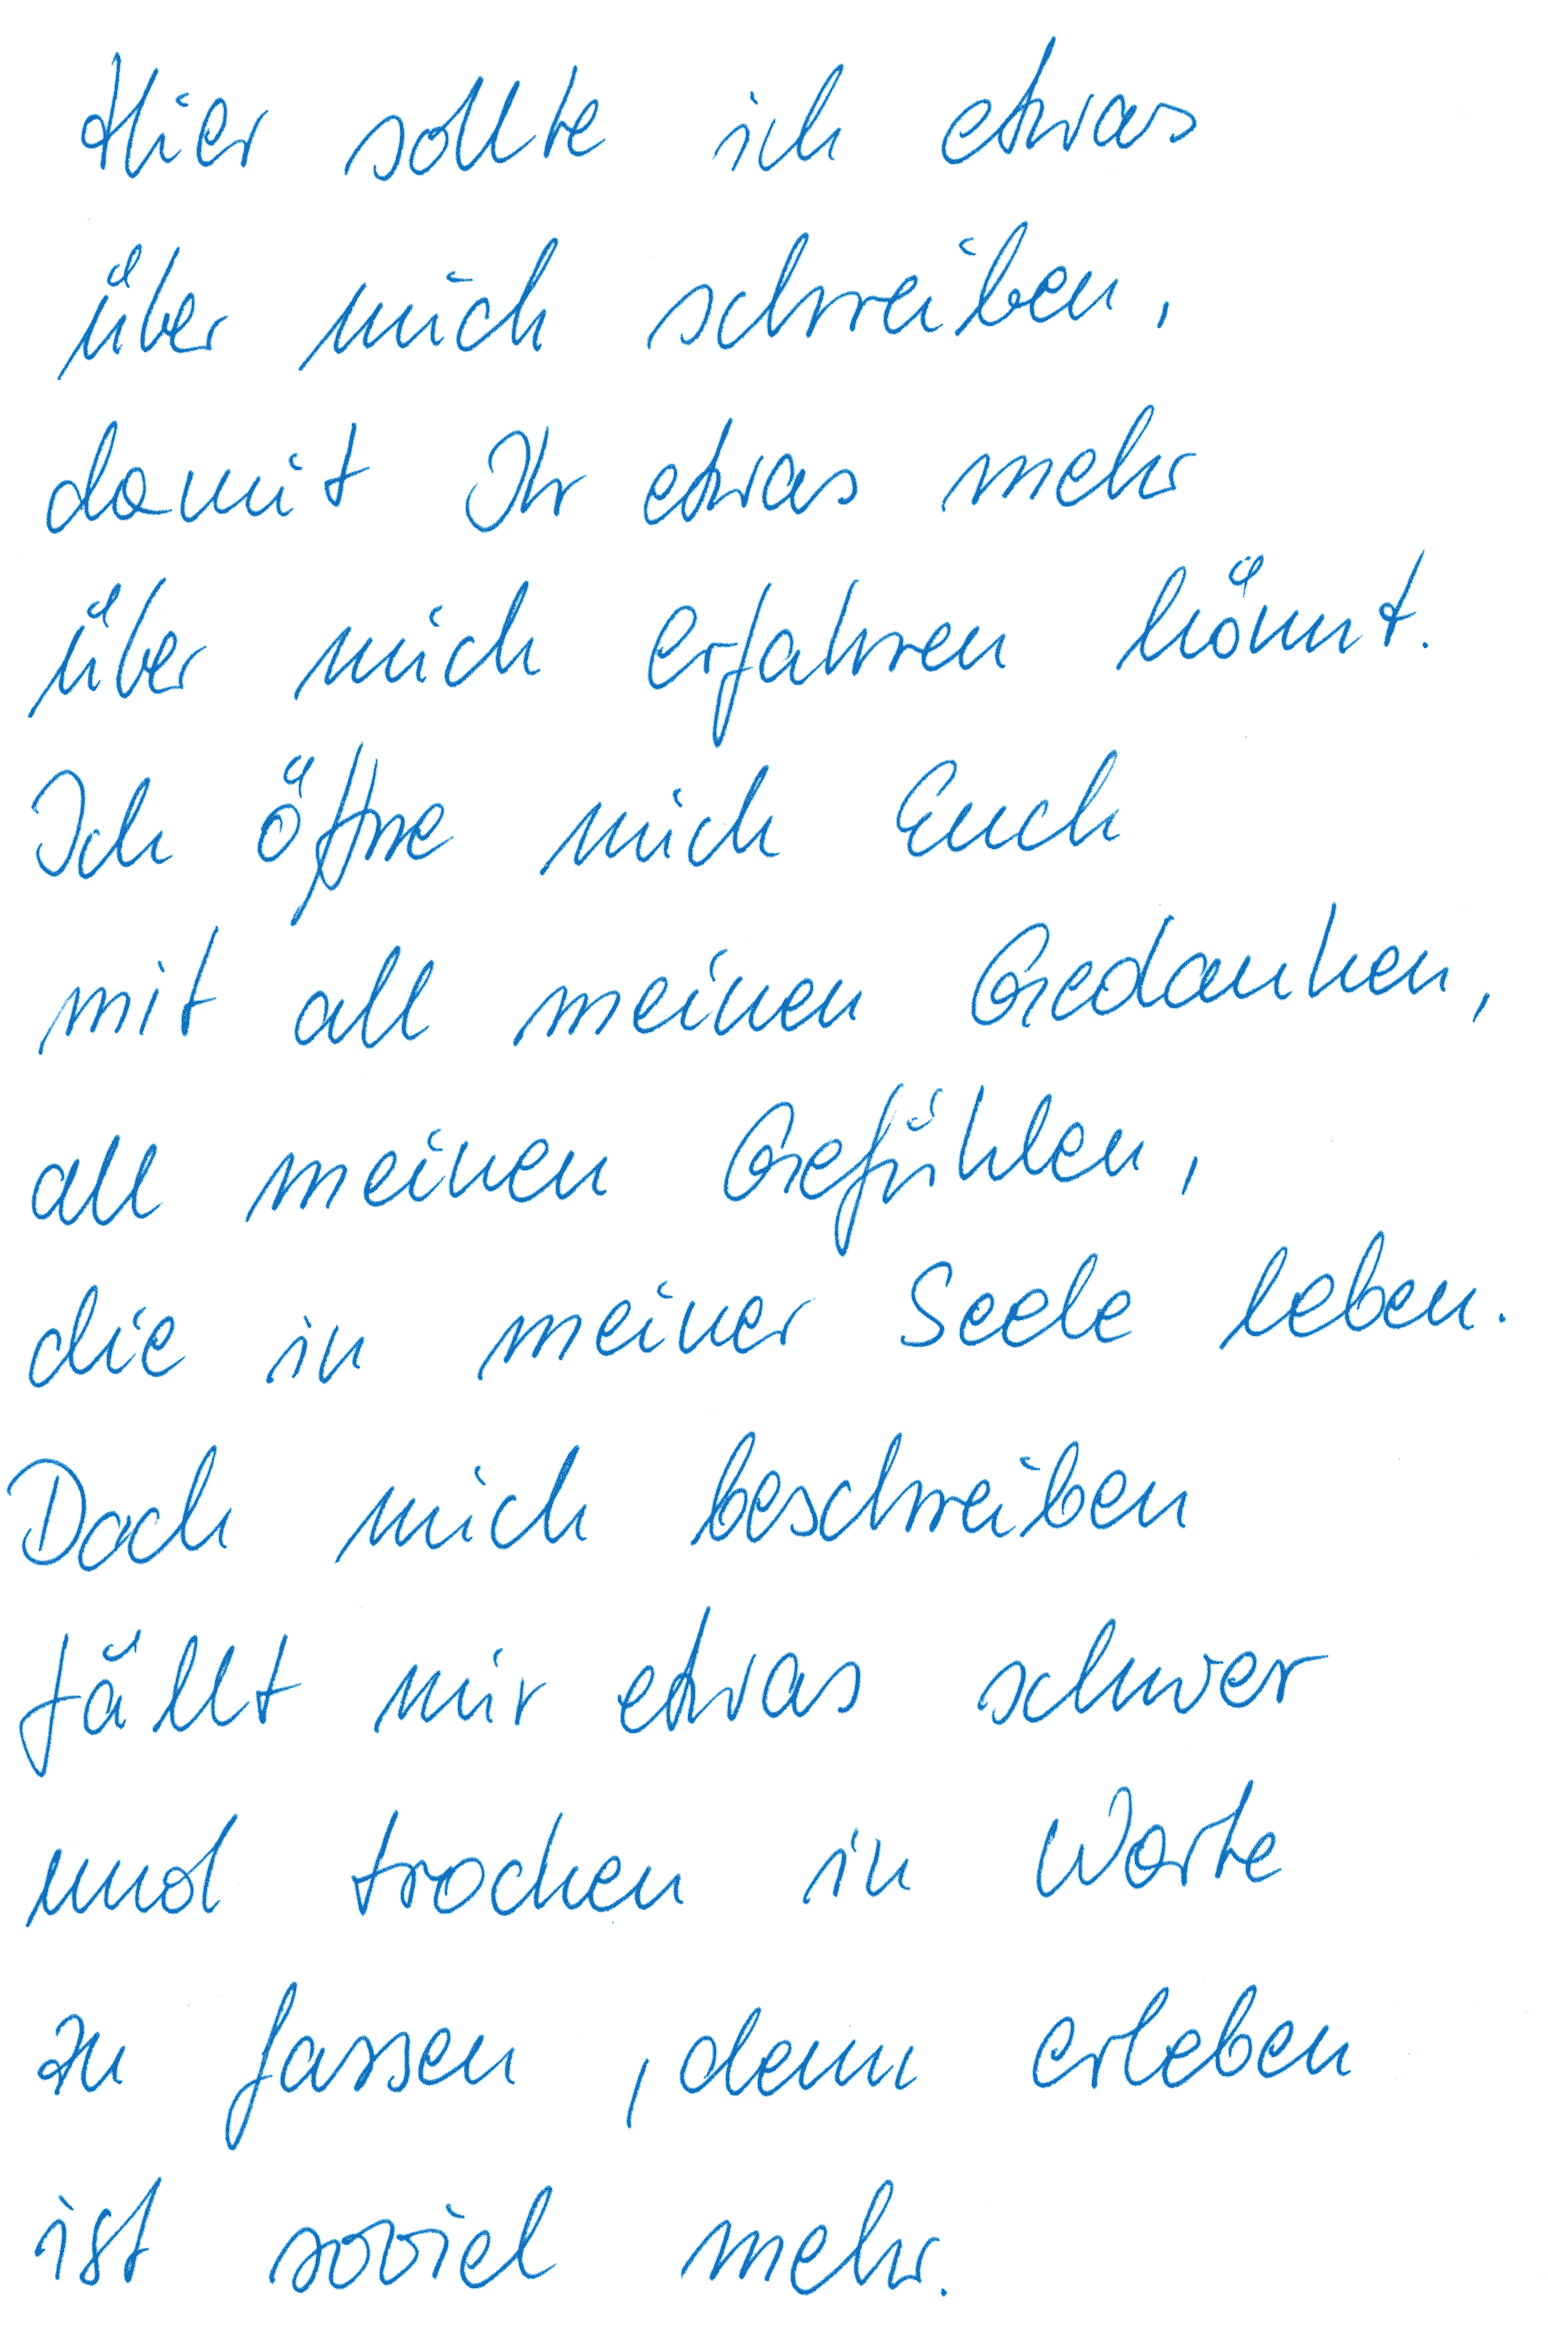 Hier sollte ich etwas
über mich schreiben,
damit Ihr etwas mehr
über mich erfahren könnt.
Ich öffne mich Euch
mit all meinen Gedanken,
all meinen Gefühlen,
die in meiner Seele leben.
Doch mich beschreiben
fällt mir etwas schwer
und trocken in Worte
zu fassen, denn erleben
ist soviel mehr.